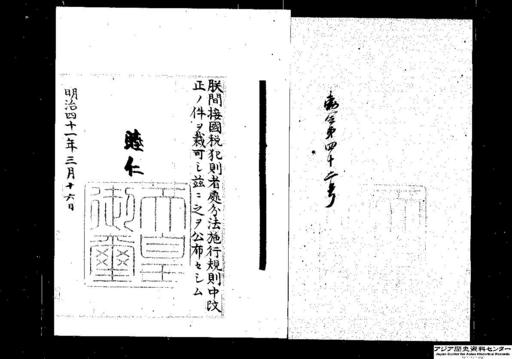 勅令第四十二号
朕間接國税犯則者處分法施行規則中改
正ノ件ヲ裁可シ茲ニ之ヲ公布セシム
睦仁
天皇御璽
明治四十一年三月十六日
アジア歴史資料センター
Japan Center for Asian Historical Records